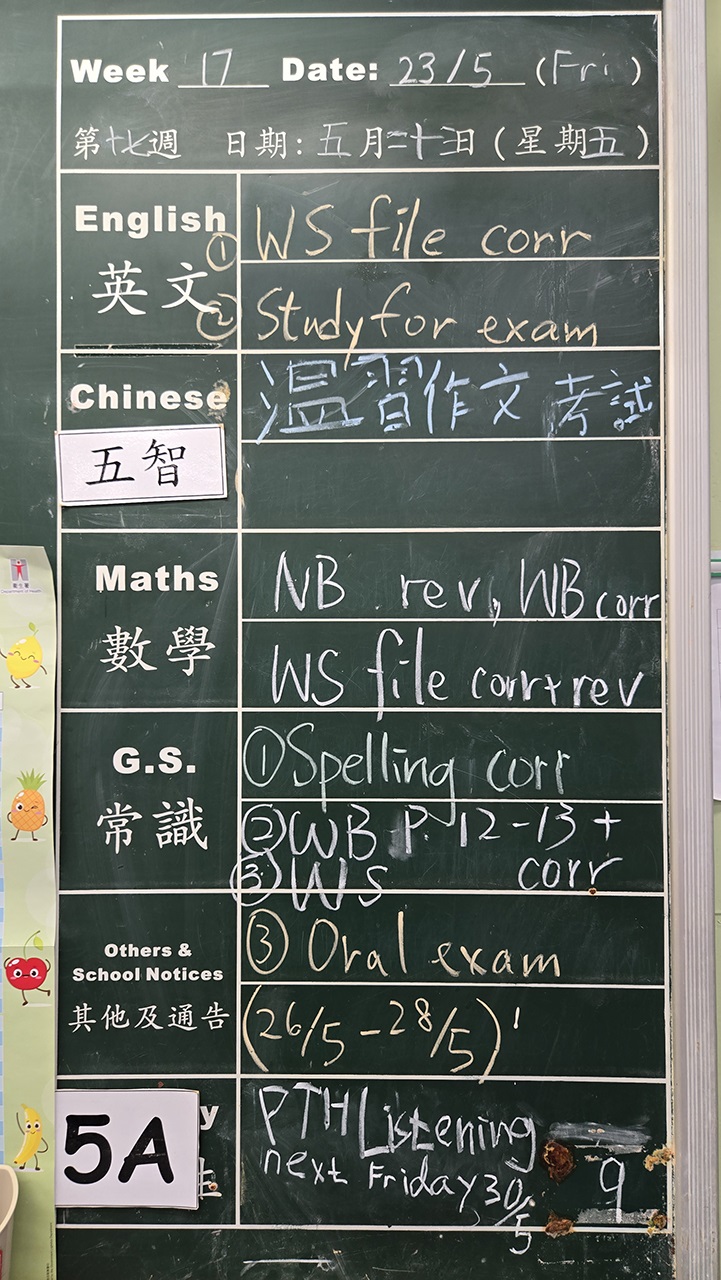 Week 17 Date: 23/5 (Fri)
第十七週 日期: 五月二十三日 (星期五)
English
英文
① WS file corr
② Study for exam
Chinese
五智
温習作文 考試
Maths
數學
NB rev, WB corr
WS file corr+rev
G.S.
常識
①Spelling corr
②WB P. 12-13 +
③WS corr
Others &
School Notices
其他及通告
③ Oral exam
(26/5-28/5)
5A
y
PTH Listening
next Friday 30/5
9
衞生署
Department of Health